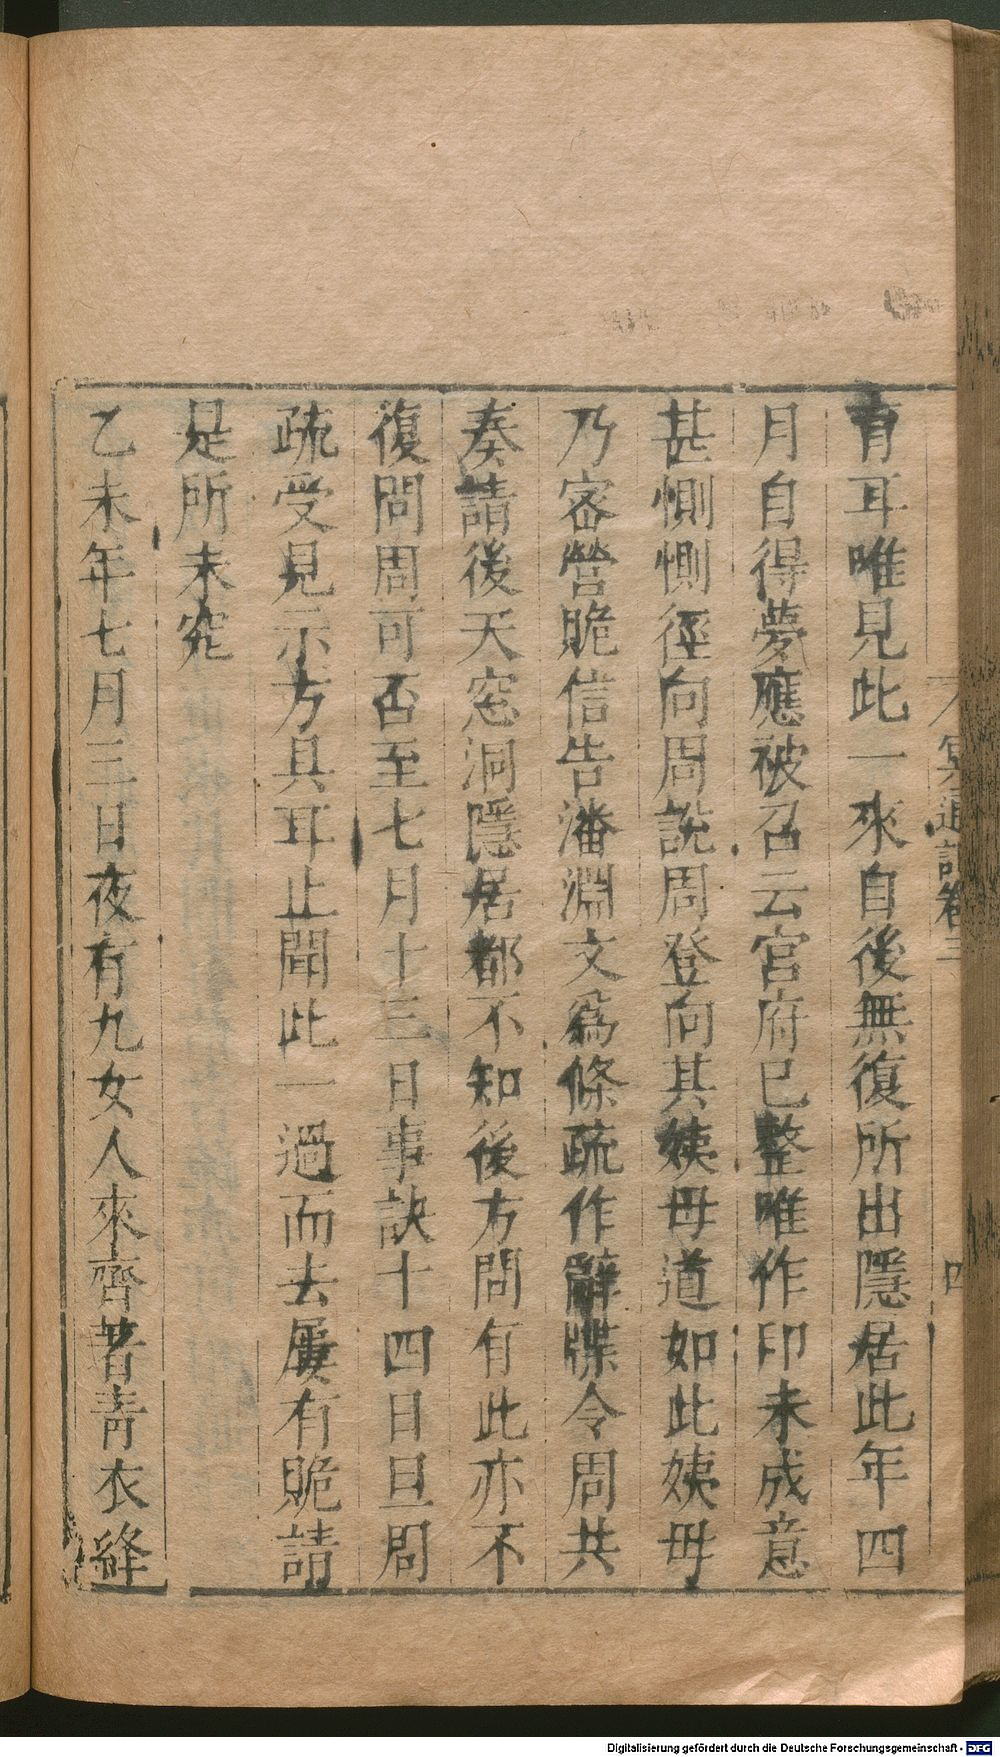 冥通記卷三
四
有耳唯見此一來自後無復所出隱居此年四
月自得夢應被召云宮府已整唯作印未成意
甚惻惻徑向周說周登向其姨母道如此姨母
乃密營脆信告潘淵文爲條疏作辭牒令周共
奏請後天窓洞隱居都不知後方問有此亦不
復問周可否至七月十三日事訣十四日旦問
疏受見示方具耳止聞此一過而去屢有貺請
是所未究
乙未年七月三日夜有九女人來齊著青衣絳
Digitalisierung gefördert durch die Deutsche Forschungsgemeinschaft - DFG